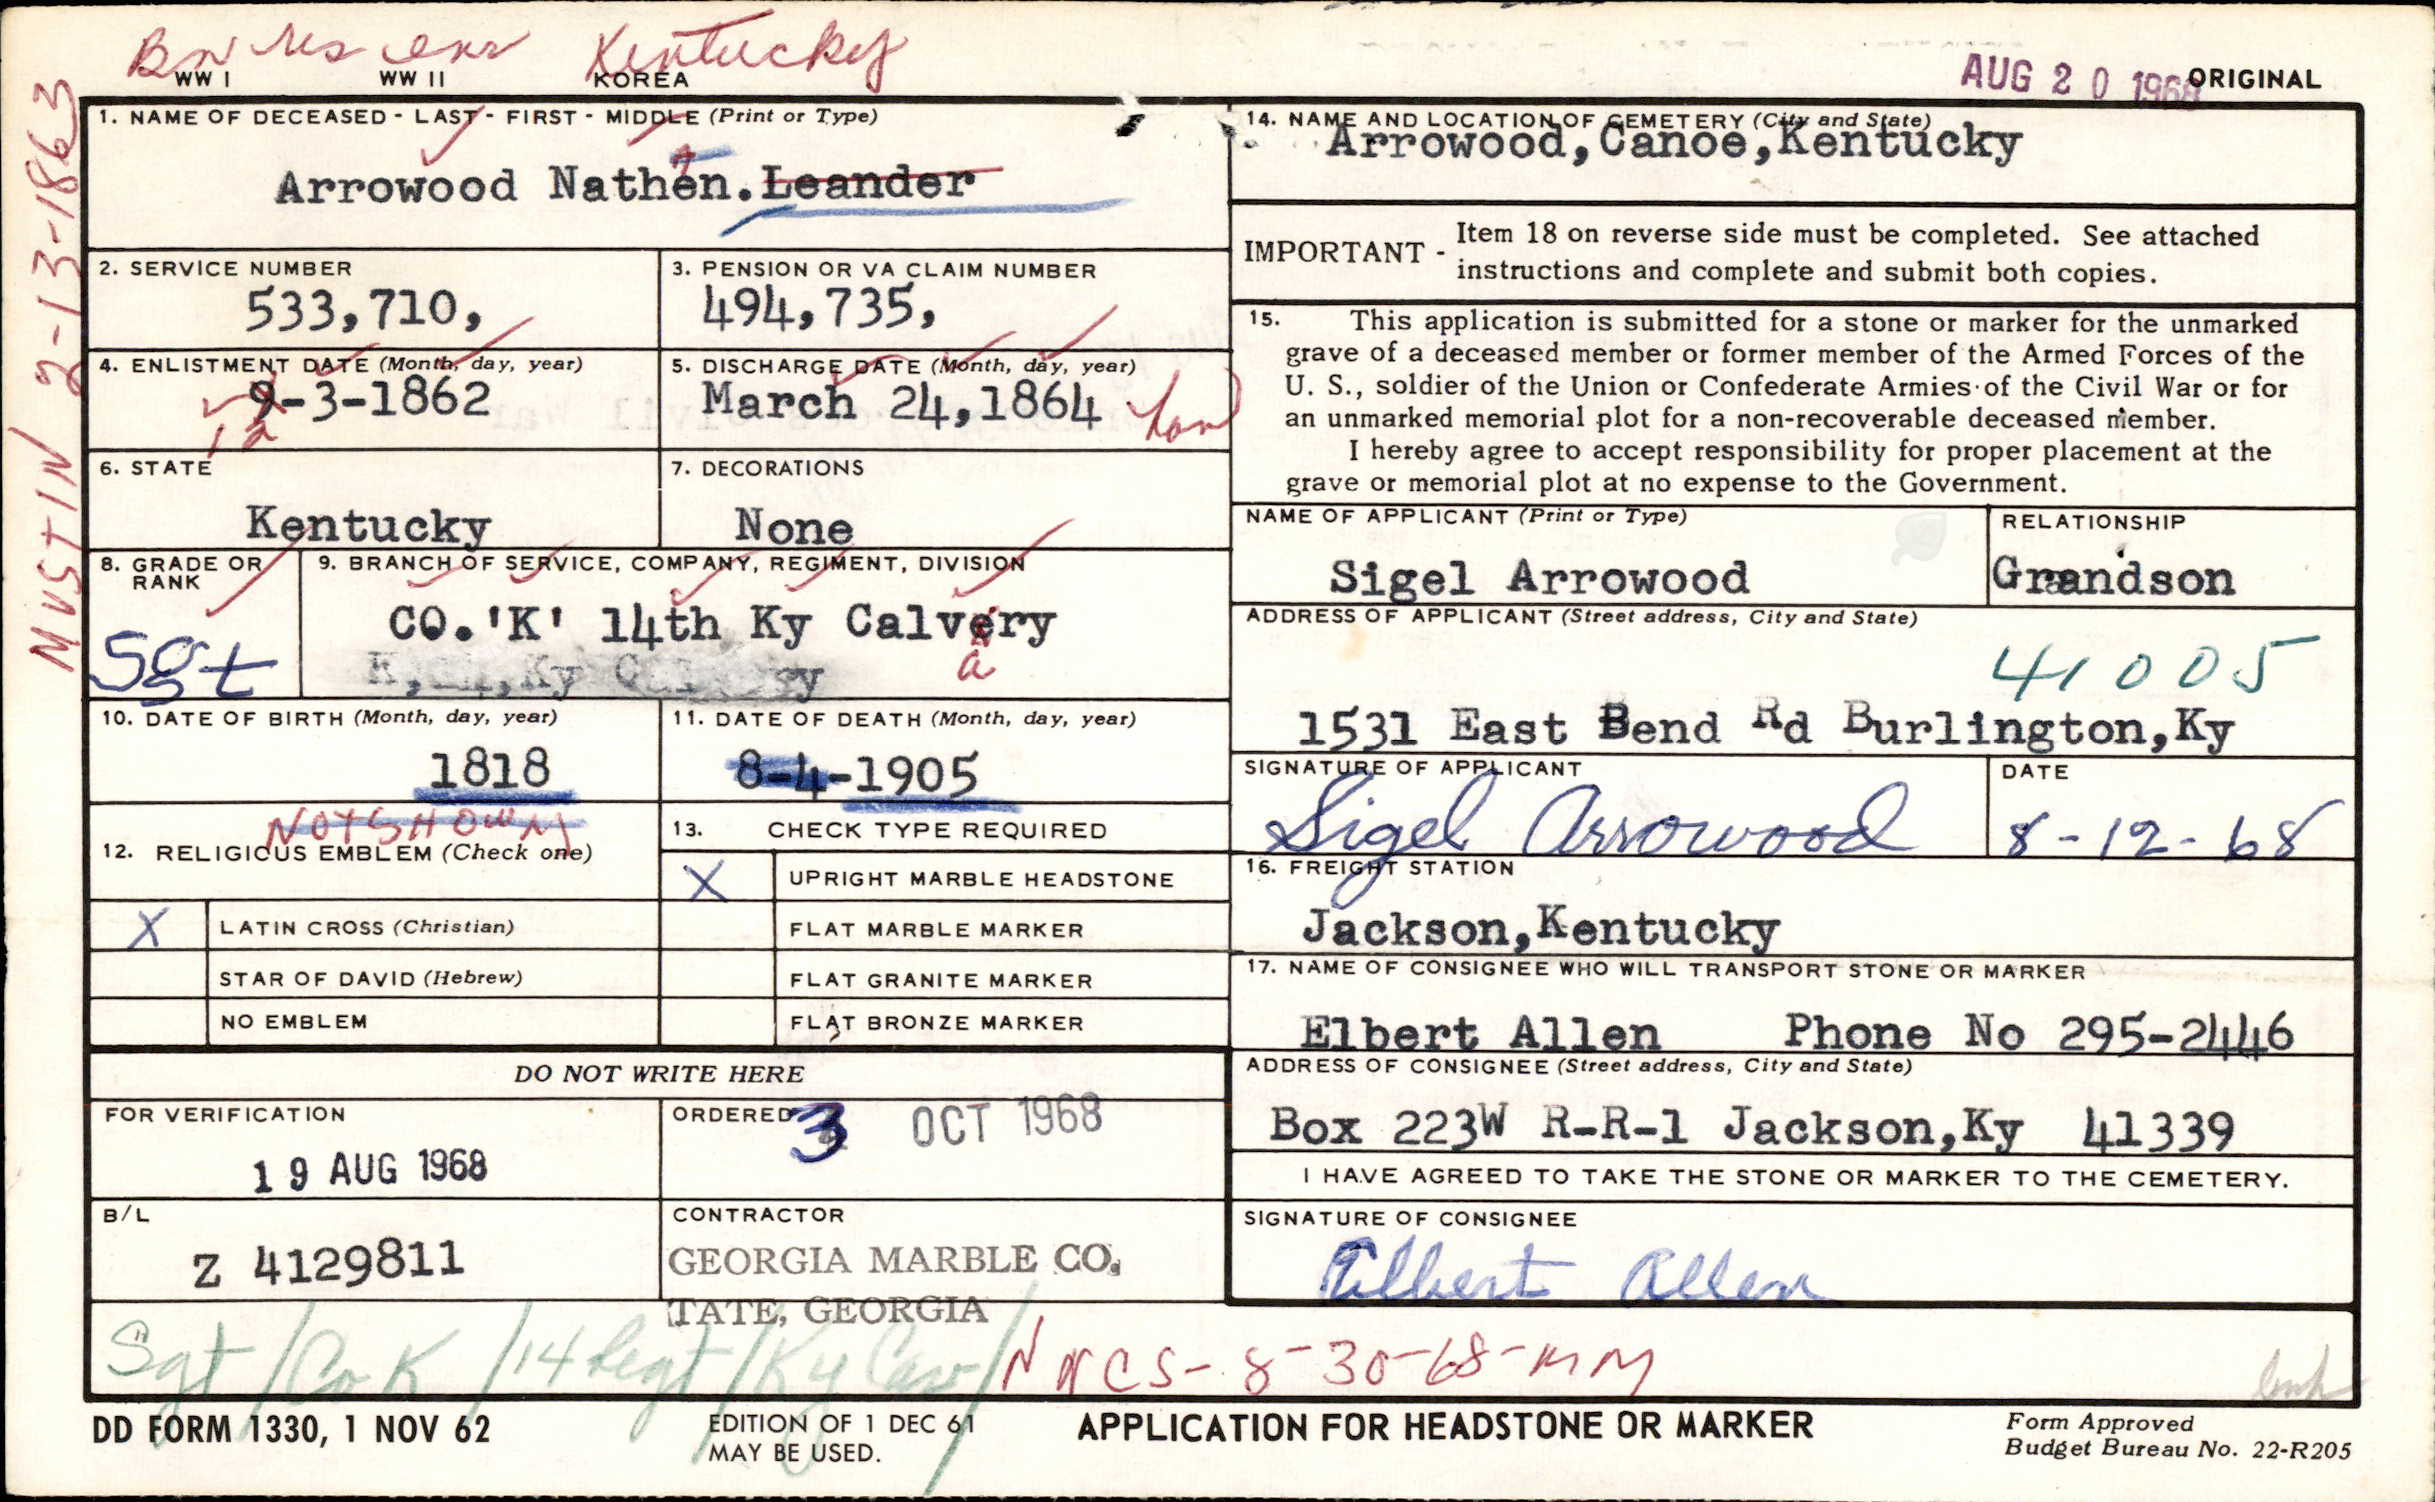 Kentucky
WW I WW II KOREA
AUG 20 1968 ORIGINAL
MUSTIN 2-13-1863
1. NAME OF DECEASED - LAST - FIRST - MIDDLE (Print or Type)
Arrowood Nathen. Leander
a
2. SERVICE NUMBER
533,710,
3. PENSION OR VA CLAIM NUMBER
494,735,
4. ENLISTMENT DATE (Month, day, year)
9-3-1862
12
5. DISCHARGE DATE (Month, day, year)
March 24,1864
6. STATE
Kentucky
7. DECORATIONS
None
8. GRADE OR RANK
Sgt
9. BRANCH OF SERVICE, COMPANY, REGIMENT, DIVISION
CO.'K' 14th Ky Calvery
a
10. DATE OF BIRTH (Month, day, year)
1818
11. DATE OF DEATH (Month, day, year)
8-4-1905
NOT SHOWN
12. RELIGIOUS EMBLEM (Check one)
X LATIN CROSS (Christian)
STAR OF DAVID (Hebrew)
NO EMBLEM
13. CHECK TYPE REQUIRED
X UPRIGHT MARBLE HEADSTONE
FLAT MARBLE MARKER
FLAT GRANITE MARKER
FLAT BRONZE MARKER
DO NOT WRITE HERE
FOR VERIFICATION
19 AUG 1968
ORDERED
3 OCT 1968
B/L
Z 4129811
CONTRACTOR
GEORGIA MARBLE CO.
TATE, GEORGIA
14. NAME AND LOCATION OF CEMETERY (City and State)
Arrowood,Canoe,Kentucky
IMPORTANT - Item 18 on reverse side must be completed. See attached
instructions and complete and submit both copies.
15. This application is submitted for a stone or marker for the unmarked
grave of a deceased member or former member of the Armed Forces of the
U. S., soldier of the Union or Confederate Armies of the Civil War or for
an unmarked memorial plot for a non-recoverable deceased member.
I hereby agree to accept responsibility for proper placement at the
grave or memorial plot at no expense to the Government.
NAME OF APPLICANT (Print or Type)
Sigel Arrowood
RELATIONSHIP
Grandson
ADDRESS OF APPLICANT (Street address, City and State)
41005
1531 East Bend Rd Burlington,Ky
SIGNATURE OF APPLICANT
Sigel Arrowood
DATE
8-12-68
16. FREIGHT STATION
Jackson,Kentucky
17. NAME OF CONSIGNEE WHO WILL TRANSPORT STONE OR MARKER
Elbert Allen Phone No 295-2446
ADDRESS OF CONSIGNEE (Street address, City and State)
Box 223W R-R-1 Jackson,Ky 41339
I HAVE AGREED TO TAKE THE STONE OR MARKER TO THE CEMETERY.
SIGNATURE OF CONSIGNEE
Elbert Allen
Sgt / Co K / 14 Regt / Ky Cav / NNCS-8-30-68-MM
DD FORM 1330, 1 NOV 62
EDITION OF 1 DEC 61
MAY BE USED.
APPLICATION FOR HEADSTONE OR MARKER
Form Approved
Budget Bureau No. 22-R205